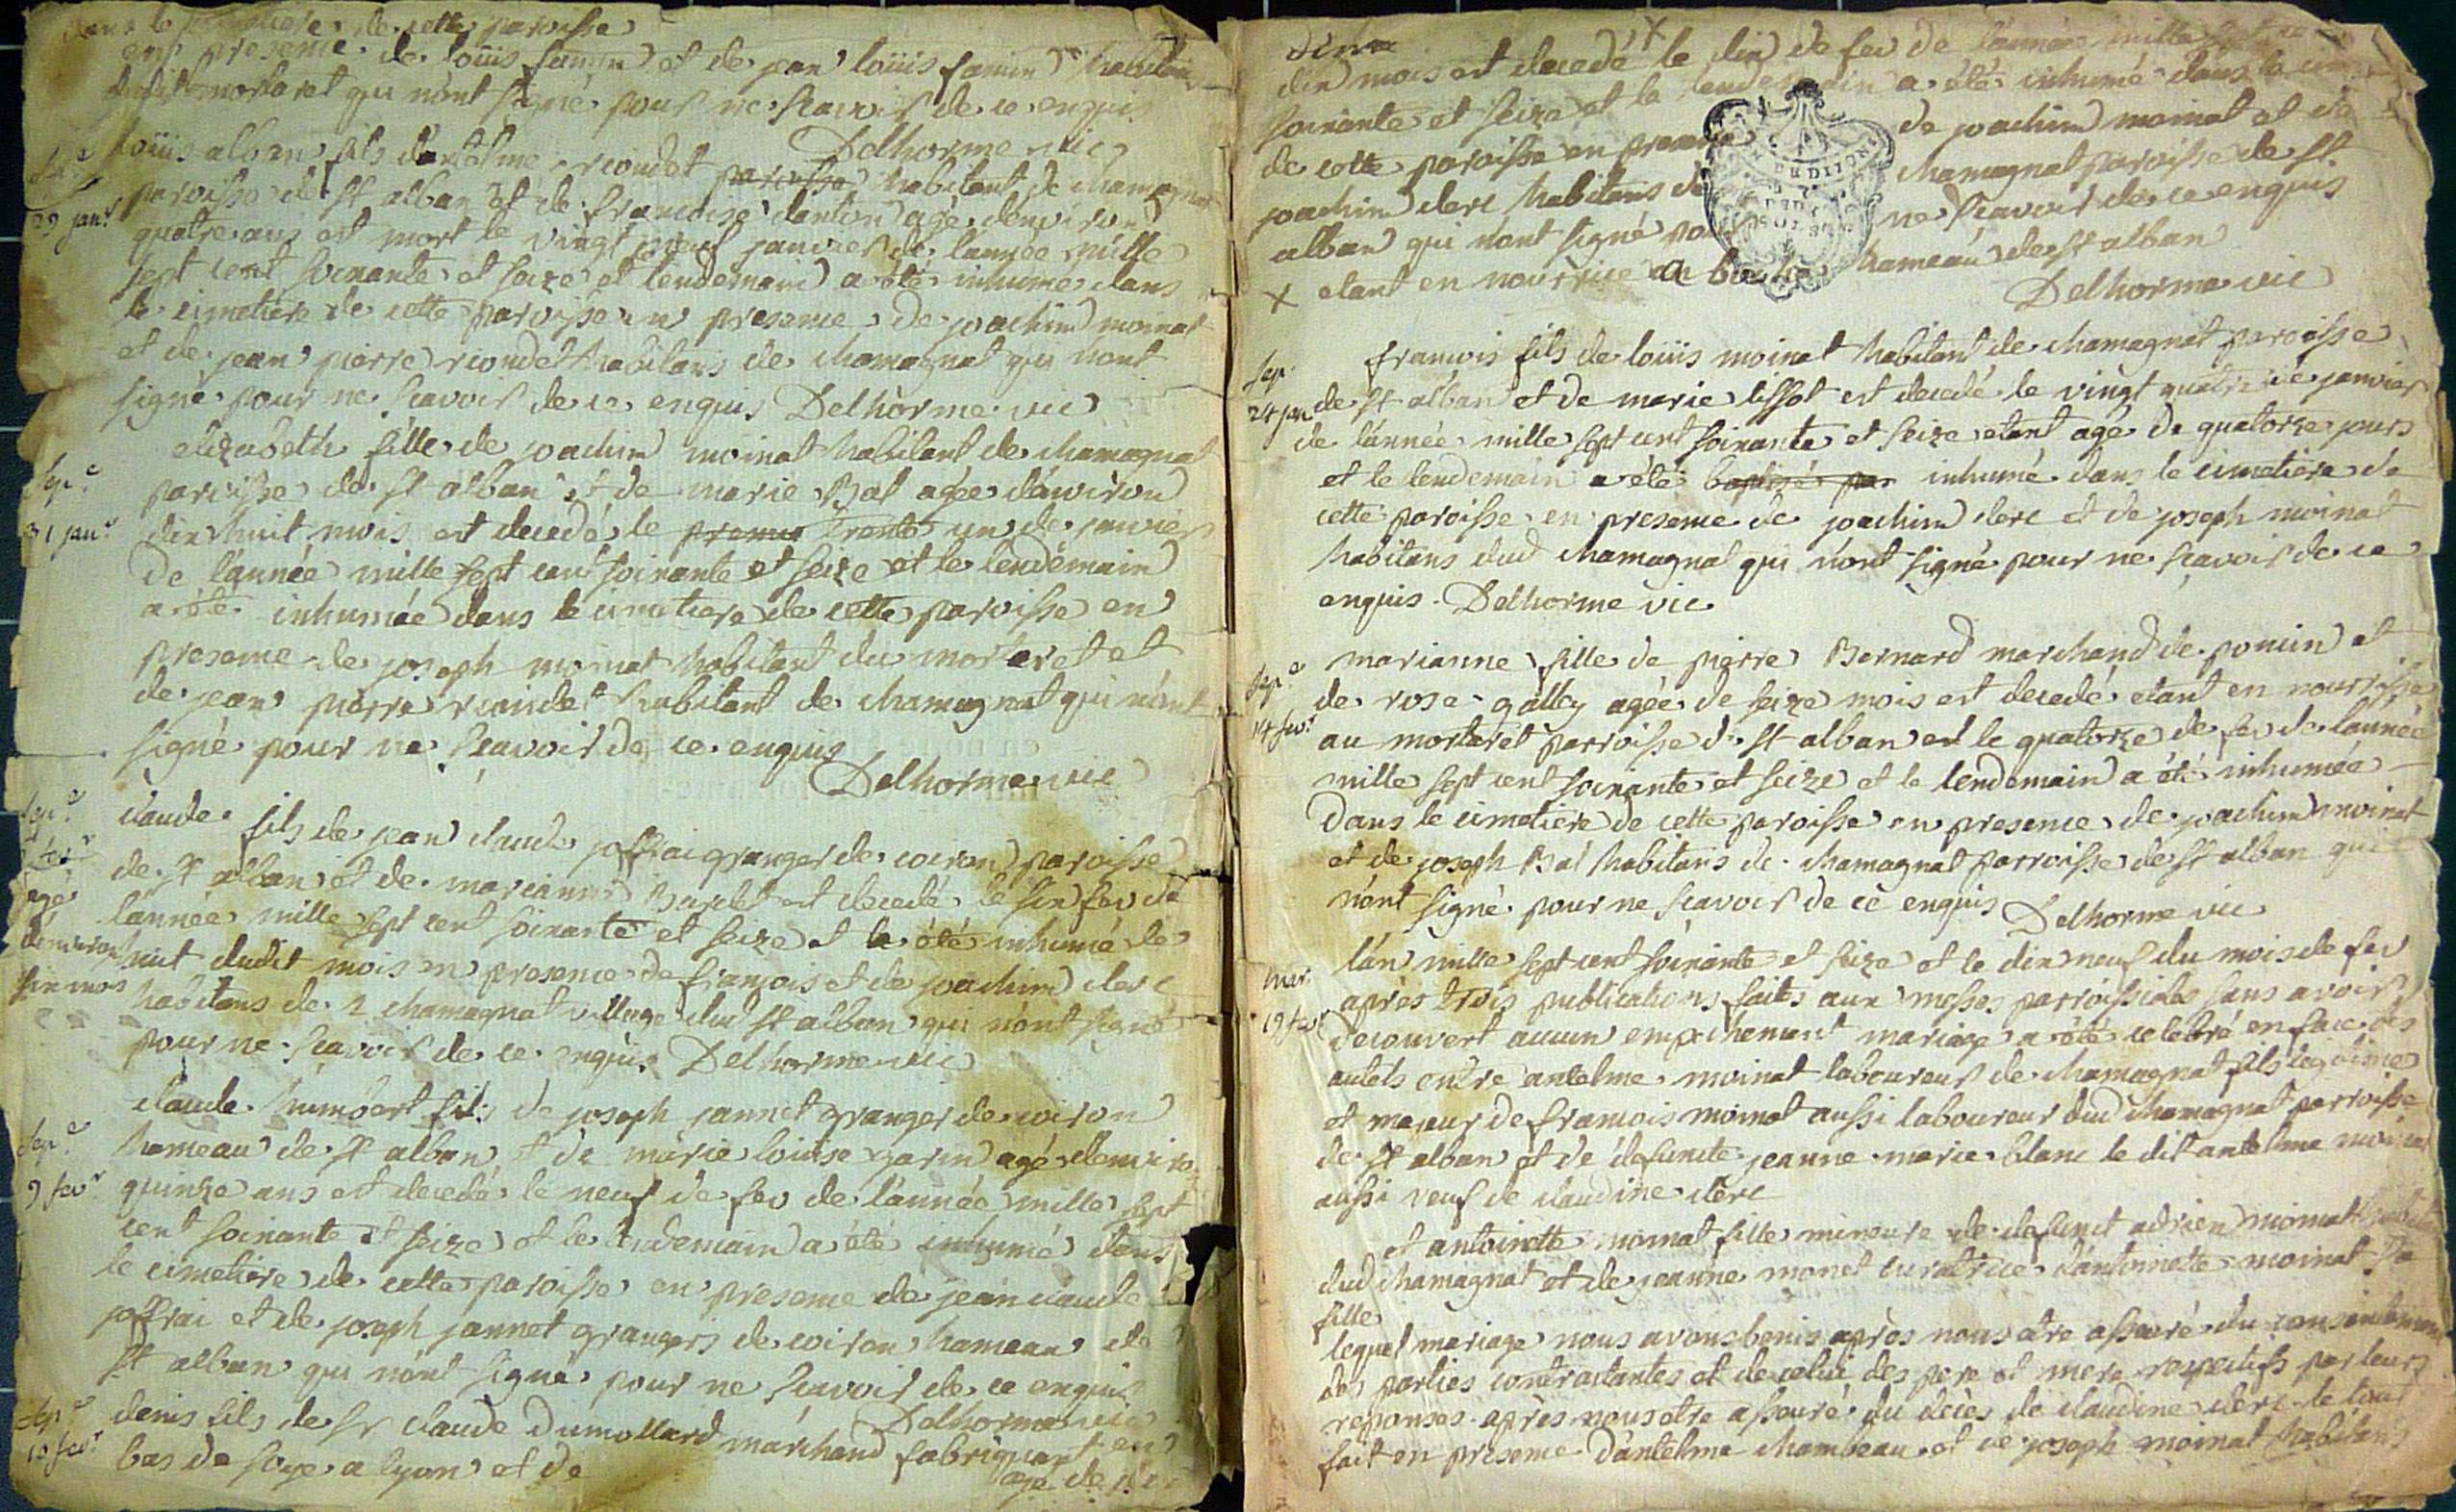 dans le cimetiere de cette paroisse
en presence de loüis famin et de jean loüis famin habitans
dudit mortaret qui n'ont signé pour ne scavoir de ce enquis
Delhorme vic
loüis alban fils d'antelme rioudet paroisse habitant de chamagnat
Sep.e
29 janr
paroisse de st alban et de francoise danton agé d'environ
quatre ans est mort le vingt neuf janvier de l'année mille
sept cent soixante et seize et lendemain a été inhumé dans
le cimetiere de cette paroisse en presence de joachim moinat
et de jean pierre rioudet habitans de chamagnat qui n'ont
signé pour ne scavoir de ce enquis Delhorme vic
Sep.e
31 janr
elizabeth fille de joachim moinat habitant de chamagnat
paroisse de st alban et de marie Bal agée d'environ
dix huit mois est decedé le premier trente un de janvier
de l'année mille sept cent soixante et seize et le lendemain
a été inhumée dans le cimetiere de cette paroisse en
presence de joseph moinat habitant du mortaret et
de jean pierre rioudet habitant de chamagnat qui n'ont
signé pour ne scavoir de ce enquis
Delhorme vic
Sep.e
fevr
agé
d'environ
six mois
claude fils de jean claude joffrai granger de coiron paroisse
de st alban et de marianne est decedé le six fev de
l'année mille sept cent soixante et seize et a été inhumé le
huit dudit mois en presence de françois et de joachim clerc
habitans de chamagnat village dud st alban qui n'ont signé
pour ne scavoir de ce enquis Delhorme vic
Sep.e
9 fevr
claude humbert fils de joseph jannet granger de coiron
hameau de st alban et de marie loüise agé d'environ
quinze ans est decedé le neuf de fev de l'année mille sept
cent soixante et seize et le lendemain a été inhumé dans
le cimetiere de cette paroisse en presence de jean claude
joffrai et de joseph jannet grangers de coiron hameau de
st alban qui n'ont signé pour ne scavoir de ce enquis
Delhorme vic
Sep.e
10 fevr
denis fils de sr claude Dumollard marchand fabriquant en
bas de soye a lyon et de agé de dix
dix mois est decedé X le dix de fev de l'année mille sept cent
soixante et seize et le lendemain a été inhumé dans le cim
de cette paroisse en presence de joachim moinat et de
joachim clerc habitans de chamagnat paroisse de st
alban qui n'ont signé pour ne scavoir de ce enquis
X etant en nourrice a hameau de st alban
Delhorme vic
Sep.
24 jan
francois fils de loüis moinat habitant de chamagnat paroisse
de st alban et de marie lissot est decedé le vingt quatrieme janvier
de l'année mille sept cent soixante et seize etant agé de quatorze jours
et le lendemain a été baptizé par inhumé dans le cimetiere de
cette paroisse en presence de joachim clerc et de joseph moinat
habitans dud chamagnat qui n'ont signé pour ne scavoir de ce
enquis. Delhorme vic
Sep.e
14 fevr
marianne fille de pierre Bernard marchand de poncin et
de rose gally agée de seize mois est decedé etant en nourrisse
au mortaret parroisse de st alban est le quatorze de fev de l'année
mille sept cent soixante et seize et le lendemain a été inhumée
dans le cimetiere de cette paroisse en presence de joachim moinat
et de joseph Bal habitans de chamagnat parroisse de st alban qui
n'ont signé pour ne scavoir de ce enquis Delhorme vic
mar.
19 fevr
l'an mille sept cent soixante et seize et le dix neuf du mois de fev
après trois publications faites aux messes parroissiales sans avoir
decouvert aucun empechement mariage a été celebré en face des
autels entre antelme moinat laboureur de chamagnat fils legitime
et majeur de francois moinat aussi laboureur dud chamagnat parroisse
de st alban et de defuncte jeanne marie blanc le dit antelme moinat
aussi veuf de claudine clerc
et antoinette moinat fille mineure de defunct adrien moinat
dud chamagnat et de jeanne monet curatrice d'antoinette moinat sa
fille
lequel mariage nous avons benis après nous etre assuré du consentement
des parties contractantes et de celui des pere et mere respectifs par leurs
reponses après nous etre assuré du décès de claudine clerc le tout
fait en presence d'antelme chambeau et de joseph moinat habitans